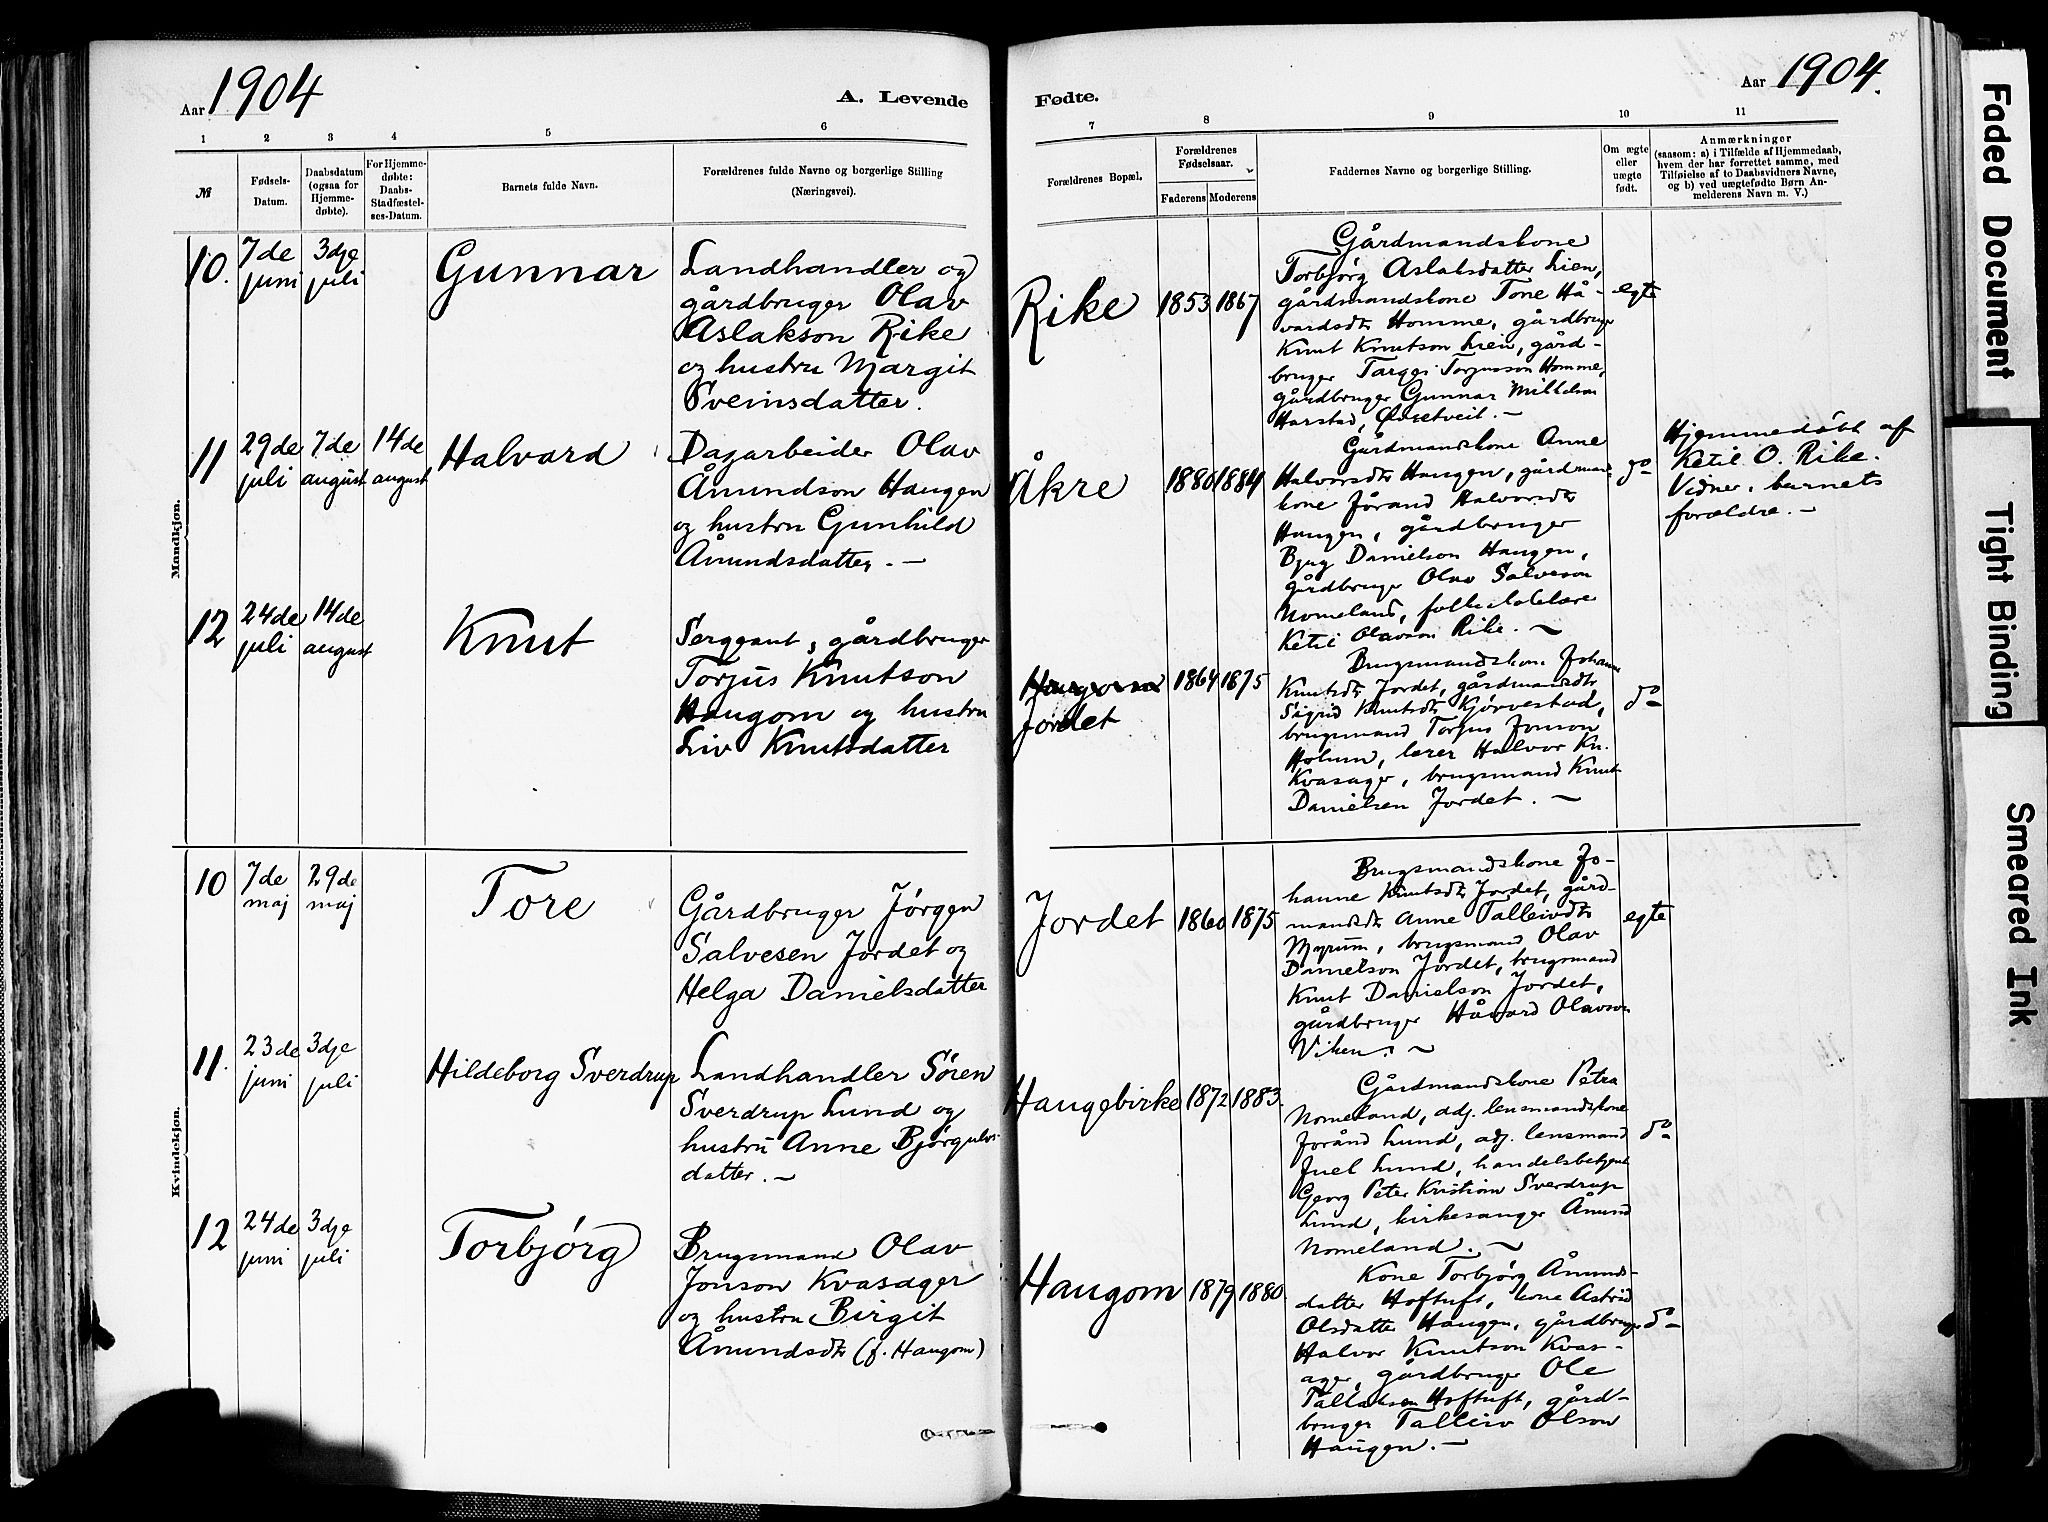 54
Aar 1904
A. Levende
Fødte.
Aar 1904.
1 2 3 4 5 6 7 8 9 10 11
№
Fødsels-
Datum.
Daabsdatum
(ogsaa for
Hjemme-
døbte).
For Hjemme-
døbte:
Daabs-
Stadfæstel-
ses-Datum.
Barnets fulde Navn.
Forældrenes fulde Navne og borgerlige Stilling
(Næringsvei).
Forældrenes Bopæl.
Forældrenes
Fødselsaar.
Faderens Moderens
Faddernes Navne og borgerlige Stilling.
Om ægte
eller
uægte
født.
Anmærkninger
(saasom: a) i Tilfælde af Hjemmedaab,
hvem der har forrettet samme, med
Tilføielse af to Daabsvidners Navne,
og b) ved uægtefødte Børn An-
melderens Navn m. V.)
Mandkjøn.
10.
7de
juni
3dje
juli
Gunnar
Landhandler og
gårdbruger Olav
Aslakson Rike
og hustru Margit
Sveinsdatter.
Rike
1853 1867
Gårdmandskone
Torbjørg Aslaksdatter Lien,
gårdmandskone Tone Hå-
vardsdtr Homme, gårdbruger
Knut Knutson Lien, gård-
bruger Targei Torjusson Homme,
gårdbruger Gunnar Mikkelson
Harstad, Øvretveit. -
egte
11
29de
juli
7de
august
14de
august
Halvard
Dagarbeider Olav
Åmundson Haugen
og hustru Gunhild
Åmundsdatter. -
Åkre
1880 1884
Gårdmandskone Anne
Halvorsdtr Haugen, gårdmands-
kone Jórand Halvorsdtr
Haugen, gårdbruger
Bjug Danielson Haugen,
gårdbruger Olav Salveson
Nomeland, folkeskolelærer
Ketil Olavson Rike. ~
do
Hjemmedøbt af
Ketil O. Rike.
Vidner, barnets
forældre. -
12
24de
juli
14de
august
Knut
Sergeant, gårdbruger
Torjus Knutson
Haugom og hustru
Liv Knutsdatter
Haugom
Jordet
1864 1875
Brugsmandskone Johanne
Knutsdtr Jordet, gårdmandsdtr
Sigrid Knutsdtr Kjørvestad,
brugsmand Torjus Jonson
Holum, lærer Halvor Kn.
Kvasager, brugsmand Knut
Danielsen Jordet. ~
do
Kvindekjøn.
10
7de
maj
29de
maj
Tore
Gårdbruger Jørgen
Salvesen Jordet og
Helga Danielsdatter
Jordet
1860 1875
Brugsmandskone Jo-
hanne Knutsdtr Jordet, gård-
mandsdtr Anne Talleivdtr
brugsmand Olav
Danielson Jordet, brugsmand
Knut Danielson Jordet,
gårdbruger Håvard Olavson
Viken. ~
egte
11.
23de
juni
3dje
juli
Hildeborg Sverdrup
Landhandler Sören
Sverdrup Lund og
hustru Anne Bjørgulvs-
datter. ~
Haugebirke
1872 1883.
Gårdmandskone Petra
Nomeland, adj. lensmandskone
Jorånd Lund, adj. lensmand
Juel Lund, handelsbetjent
Georg Peter Kristian Sverdrup
Lund, kirkesanger Åmund
Nomeland. ~
do
12
24de
juni
3dje
juli
Torbjørg
Brugsmand Olav
Jonson Kvasager
og hustru Birgit
Åmundsdtr (f. Haugom)
Haugom
1879 1880.
Kone Torbjørg Åmunds-
datter Hoftuft, kone Astrid
Olsdatter Haugen, gårdbruger
Halvor Knutson Kvas-
ager, gårdbruger Ole
Tallaksen Hoftuft, gård-
bruger Talleiv Olson
Haugen. -
do
Faded Document
Tight Binding
Smeared Ink